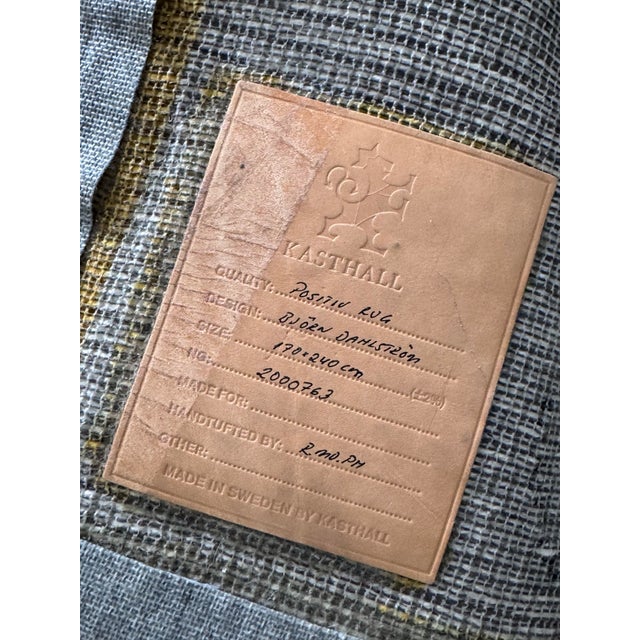 KASTHALL
QUALITY: POSITIV RUG
DESIGN: BJÖRN DAHLSTRÖM
SIZE: 170x240cm (±2%)
NO: 2000763
MADE FOR:
HANDTUFTED BY: R.MO.PH
OTHER:
MADE IN SWEDEN BY KASTHALL